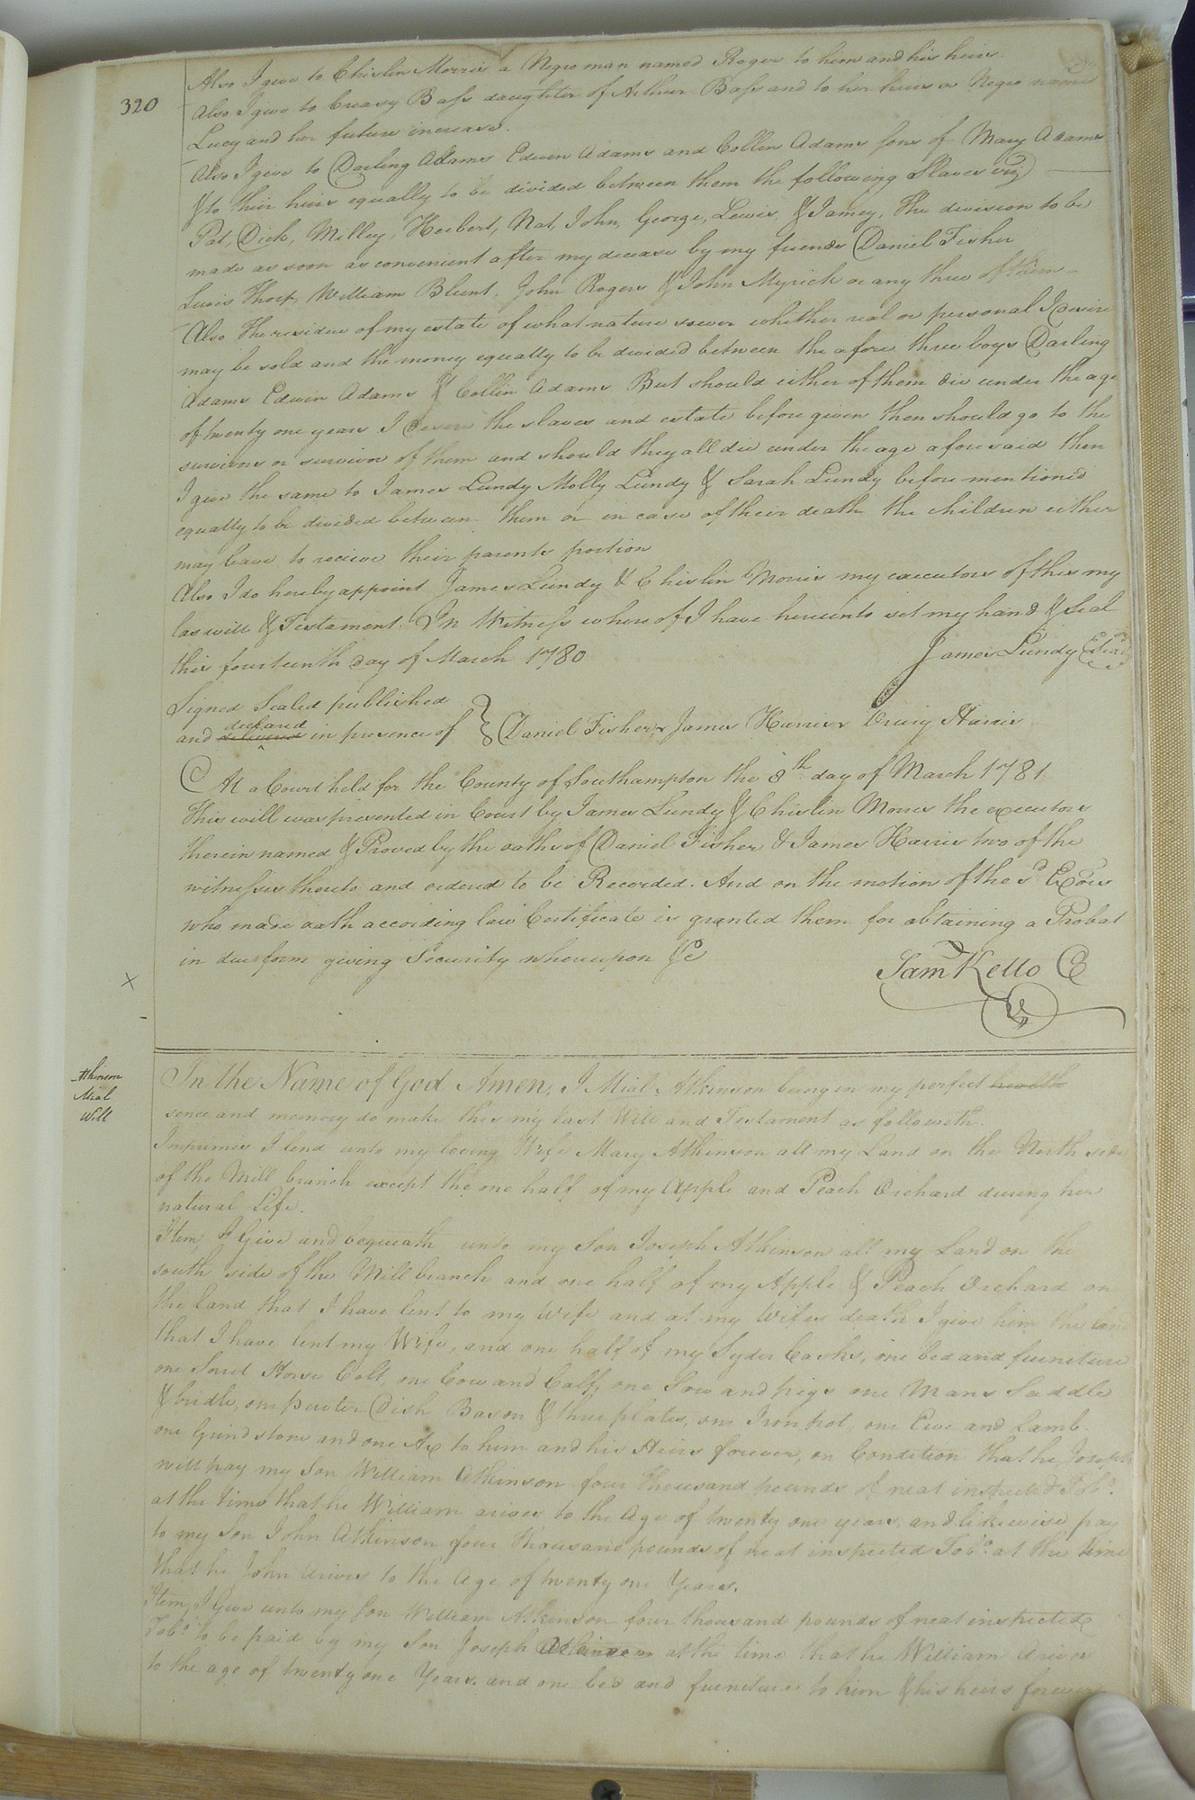 320
Also I give to Chislin Morris a Negro man named Roger to him and his heirs
Also I give to Creasy Bass daughter of Arthur Bass and to her heirs a Negro named
Lucy and her future increase.
Also I give to Darling Adams Edwin Adams and Collin Adams sons of Mary Adams
& to their heirs equally to be divided between them the following Slaves viz
Pat, Dick, Milley, Herbert, Nat, John, George, Lewis, & Jamey, the division to be
made as soon as convenient after my decease by my friends Daniel Fisher
Lewis Thorp, William Blunt, John Rogers & John Myrick or any three of them
Also The residue of my estate of what nature soever whether real or personal I desire
may be sold and the money equally to be divided between the afore three boys Darling
Adams Edwin Adams & Collin Adams But should either of them die under the age
of twenty one years I desire the slaves and estate before given then should go to the
survivors or survivor of them and should they all die under the age aforesaid then
I give the same to James Lundy Molly Lundy & Sarah Lundy before mentioned
equally to be divided between them or in case of their death the children either
may leave to recieve their parents portion
Also I do hereby appoint James Lundy & Chislin Morris my executors of this my
las will & Testament. In Witness whereof I have hereunto set my hand & Seal
this fourteenth day of March 1780
James Lundy (Seal)
Signed Sealed published
declared
and delivered in presence of } Daniel Fisher, James Harris, Craig Harris
At a Court held for the County of Southampton the 8th day of March 1781
This will was presented in Court by James Lundy & Chislin Morris the executors
therein named & Proved by the oaths of Daniel Fisher & James Harris two of the
witnesses thereto and ordered to be Recorded. And on the motion of the sd Exors
who made oath according law Certificate is granted them for obtaining a Probat
in due form giving Security whereupon &c
Saml Kello C
X
Atkinson
Mial
Will
In the Name of God Amen, I Mial Atkinson being in my perfect health
sence and memory do make this my last Will and Testament as followeth.
Imprimes I lend unto my loving Wife Mary Atkinson all my Land on the North side
of the Mill branch except the one half of my Apple and Peach Orchard during her
natural Life.
Item I Give and bequeath unto my Son Joseph Atkinson all my Land on the
south side of the Mill branch and one half of my Apple & Peach Orchard on
the land that I have lent to my wife and at my Wifes death I give him the land
that I have lent my Wife, and one half of my Syder Casks, one bed and furniture
one Sorrel Horse Colt, one Cow and Calf, one Sow and pigs one Mans Saddle
& bridle, one pewter Dish Bason & three plates, one Iron pot, one Ewe and Lamb.
one Grindstone and one Ax to him and his Heirs forever, on Condition that he Joseph
will pay my Son William Atkinson four thousand pounds of neat inspected Tobo.
at the time that he William arives to the Age of twenty one years, and likewise pay
to my Son John Atkinson four thousand pounds of neat inspected Tobo. at the time
that he John arives to the Age of twenty one Years.
Item, I Give unto my Son William Atkinson four thousand pounds of neat inspected
Tobo. to be paid by my Son Joseph Atkinson at the time that he William arives
to the age of twenty one Years. and one bed and furniture to him & his heirs forever